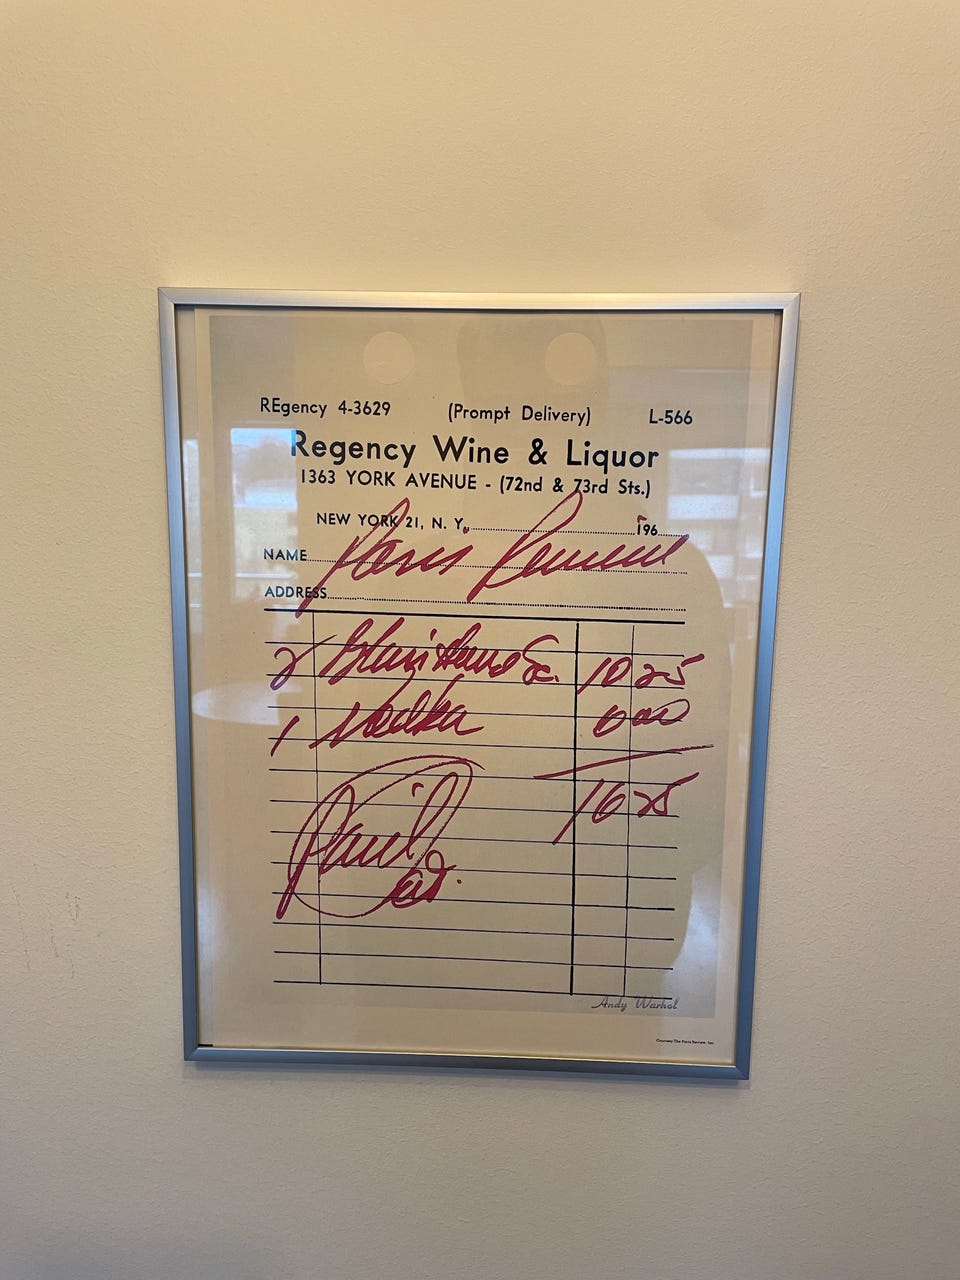 REgency 4-3629 (Prompt Delivery) L-566
Regency Wine & Liquor
1363 YORK AVENUE - (72nd & 73rd Sts.)
NEW YORK 21, N. Y. 196
NAME Paris Review
ADDRESS
2 10 25
1 Vodka 6 00
16 25
Paid
Andy Warhol
Courtesy The Paris Review, Inc.